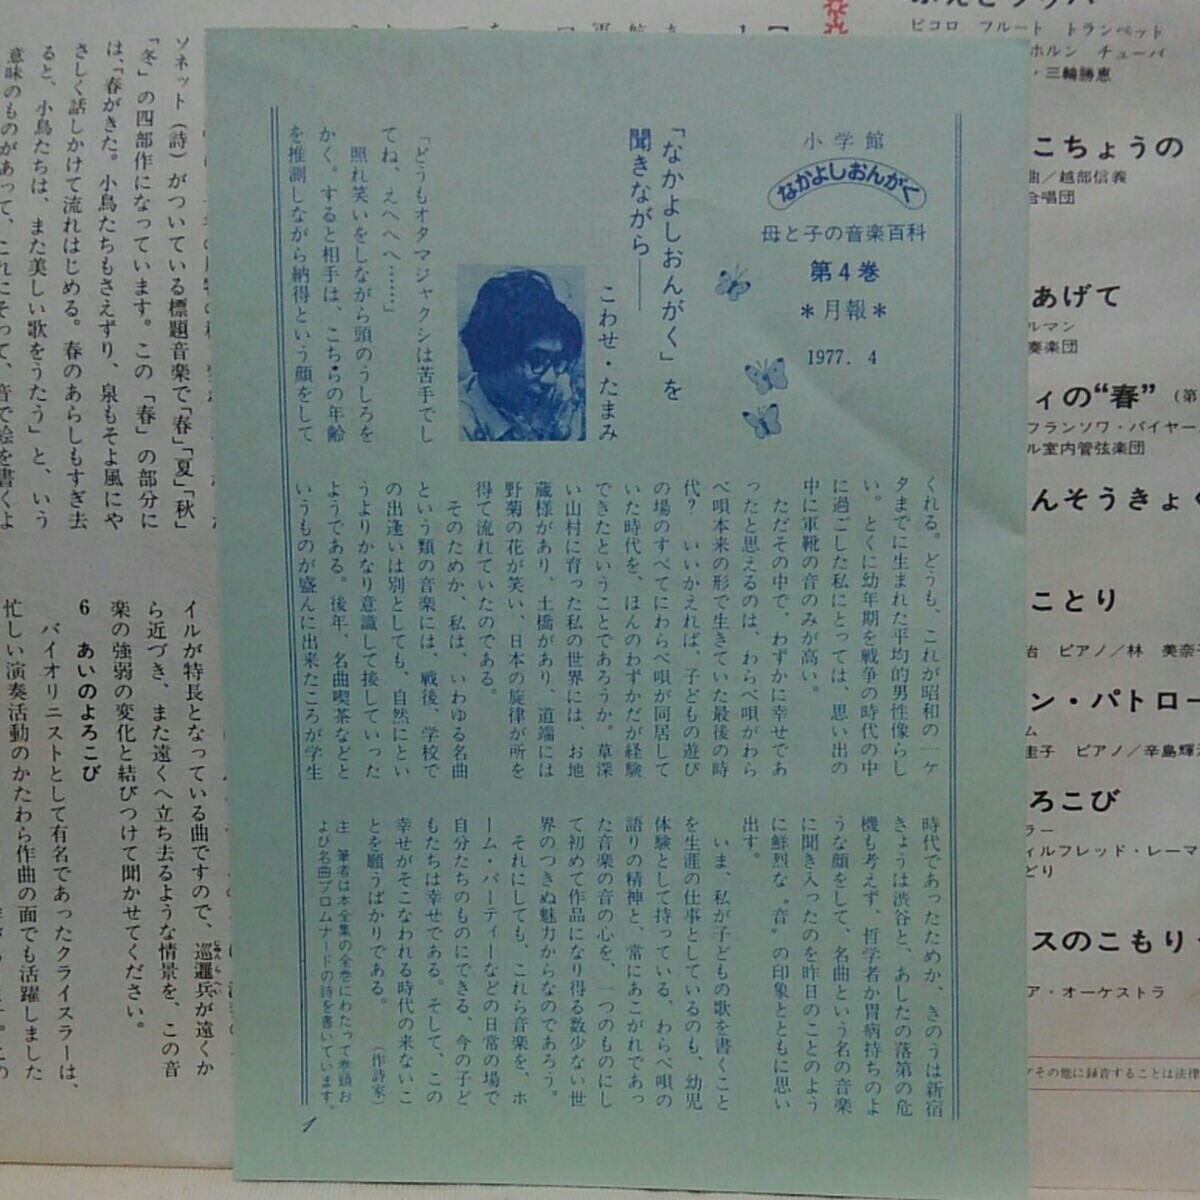 小学館
なかよしおんがく
母と子の音楽百科
第4巻
＊月報＊
1977. 4
「なかよしおんがく」を
聞きながら――
こわせ・たまみ
「どうもオタマジャクシは苦手でし
てね、えへへへ……」
照れ笑いをしながら頭のうしろを
かく。すると相手は、こちらの年齢
を推測しながら納得という顔をして
くれる。どうも、これが昭和の一ケ
タまでに生まれた平均的男性像らし
い。とくに幼年期を戦争の時代の中
に過ごした私にとっては、思い出の
中に軍靴の音のみが高い。
ただその中で、わずかに幸せであ
ったと思えるのは、わらべ唄がわら
べ唄本来の形で生きていた最後の時
代？　いいかえれば、子どもの遊び
の場のすべてにわらべ唄が同居して
いた時代を、ほんのわずかだが経験
できたということであろうか。草深
い山村に育った私の世界には、お地
蔵様があり、土橋があり、道端には
野菊の花が笑い、日本の旋律が所を
得て流れていたのである。
そのためか、私は、いわゆる名曲
という類の音楽には、戦後、学校で
の出逢いは別としても、自然にとい
うよりかなり意識して接していった
ようである。後年、名曲喫茶などと
いうものが盛んに出来たころが学生
時代であったためか、きのうは新宿
きょうは渋谷と、あしたの落第の危
機も考えず、哲学者か胃病持ちのよ
うな顔をして、名曲という名の音楽
に聞き入ったのを昨日のことのよう
に鮮烈な〝音〟の印象とともに思い
出す。
いま、私が子どもの歌を書くこと
を生涯の仕事としているのも、幼児
体験として持っている、わらべ唄の
語りの精神と、常にあこがれであっ
た音楽の音の心を、一つのものにし
て初めて作品になり得る数少ない世
界のつきぬ魅力からなのであろう。
それにしても、これら音楽を、ホ
ーム・パーティーなどの日常の場で
自分たちのものにできる、今の子ど
もたちは幸せである。そして、この
幸せがそこなわれる時代の来ないこ
とを願うばかりである。　（作詩家）
注　筆者は本全集の全巻にわたって巻頭お
よび名曲プロムナードの詩を書いています。
1
ソネット（詩）がついている標題音楽で「春」「夏」「秋」
「冬」の四部作になっています。この「春」の部分に
は、「春がきた。小鳥たちもさえずり、泉もそよ風にや
さしく話しかけて流れはじめる。春のあらしもすぎ去
ると、小鳥たちは、また美しい歌をうたう」と、いう
意味のものがあって、これにそって、音で絵を書くよ
イルが特長となっている曲ですので、巡邏兵が遠くか
ら近づき、また遠くへ立ち去るような情景を、この音
楽の強弱の変化と結びつけて聞かせてください。
6　あいのよろこび
バイオリニストとして有名であったクライスラーは、
忙しい演奏活動のかたわら作曲の面でも活躍しました
ピコロ　フルート　トランペット
ホルン　チューバ
・三輪勝恵
こちょうの
曲／越部信義
合唱団
あげて
ルマン
奏楽団
ィの“春”（第
フランソワ・パイヤー
ル室内管弦楽団
んそうきょく
ことり
治　ピアノ／林　美奈子
ン・パトロー
ム
圭子　ピアノ／辛島輝
ろこび
ラー
ィルフレッド・レーマ
どり
スのこもり
ア・オーケストラ
その他に録音することは法律